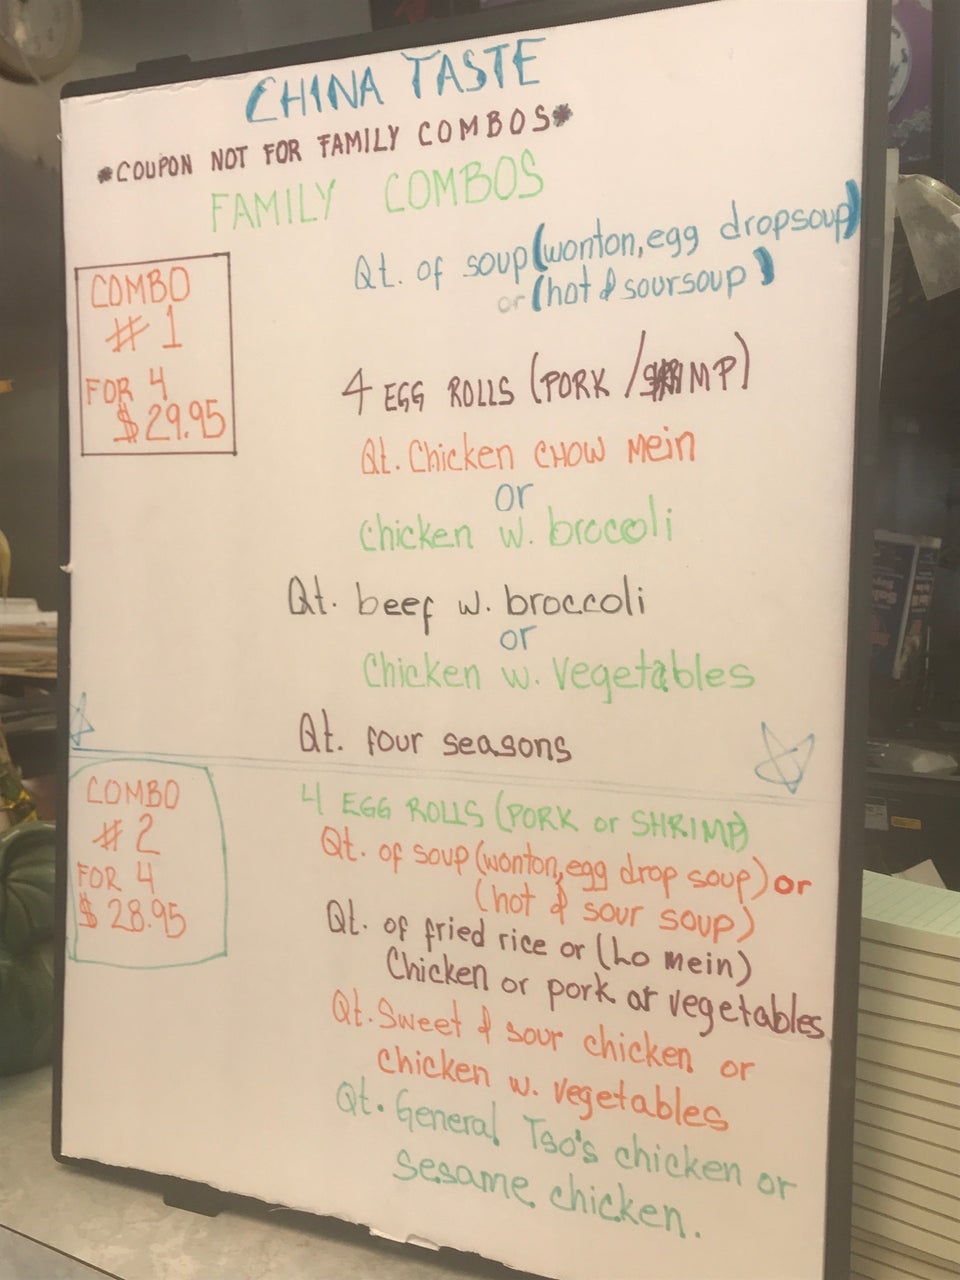 CHINA TASTE
*COUPON NOT FOR FAMILY COMBOS*
FAMILY COMBOS
COMBO
# 1
FOR 4
$29.95
Qt. of soup (wonton, egg dropsoup)
or (hot & soursoup)
4 EGG ROLLS (PORK / SHRIMP)
Qt. Chicken CHOW Mein
or
Chicken w. broccoli
Qt. beef w. broccoli
or
Chicken w. Vegetables
Qt. four seasons
COMBO
# 2
FOR 4
$ 28.95
4 EGG ROLLS (PORK or SHRIMP)
Qt. of soup (wonton, egg drop soup) or
(hot & sour soup)
Qt. of fried rice or (Lo mein)
Chicken or pork or vegetables
Qt. Sweet & sour chicken or
chicken w. vegetables
Qt. General Tso's chicken or
Sesame chicken.